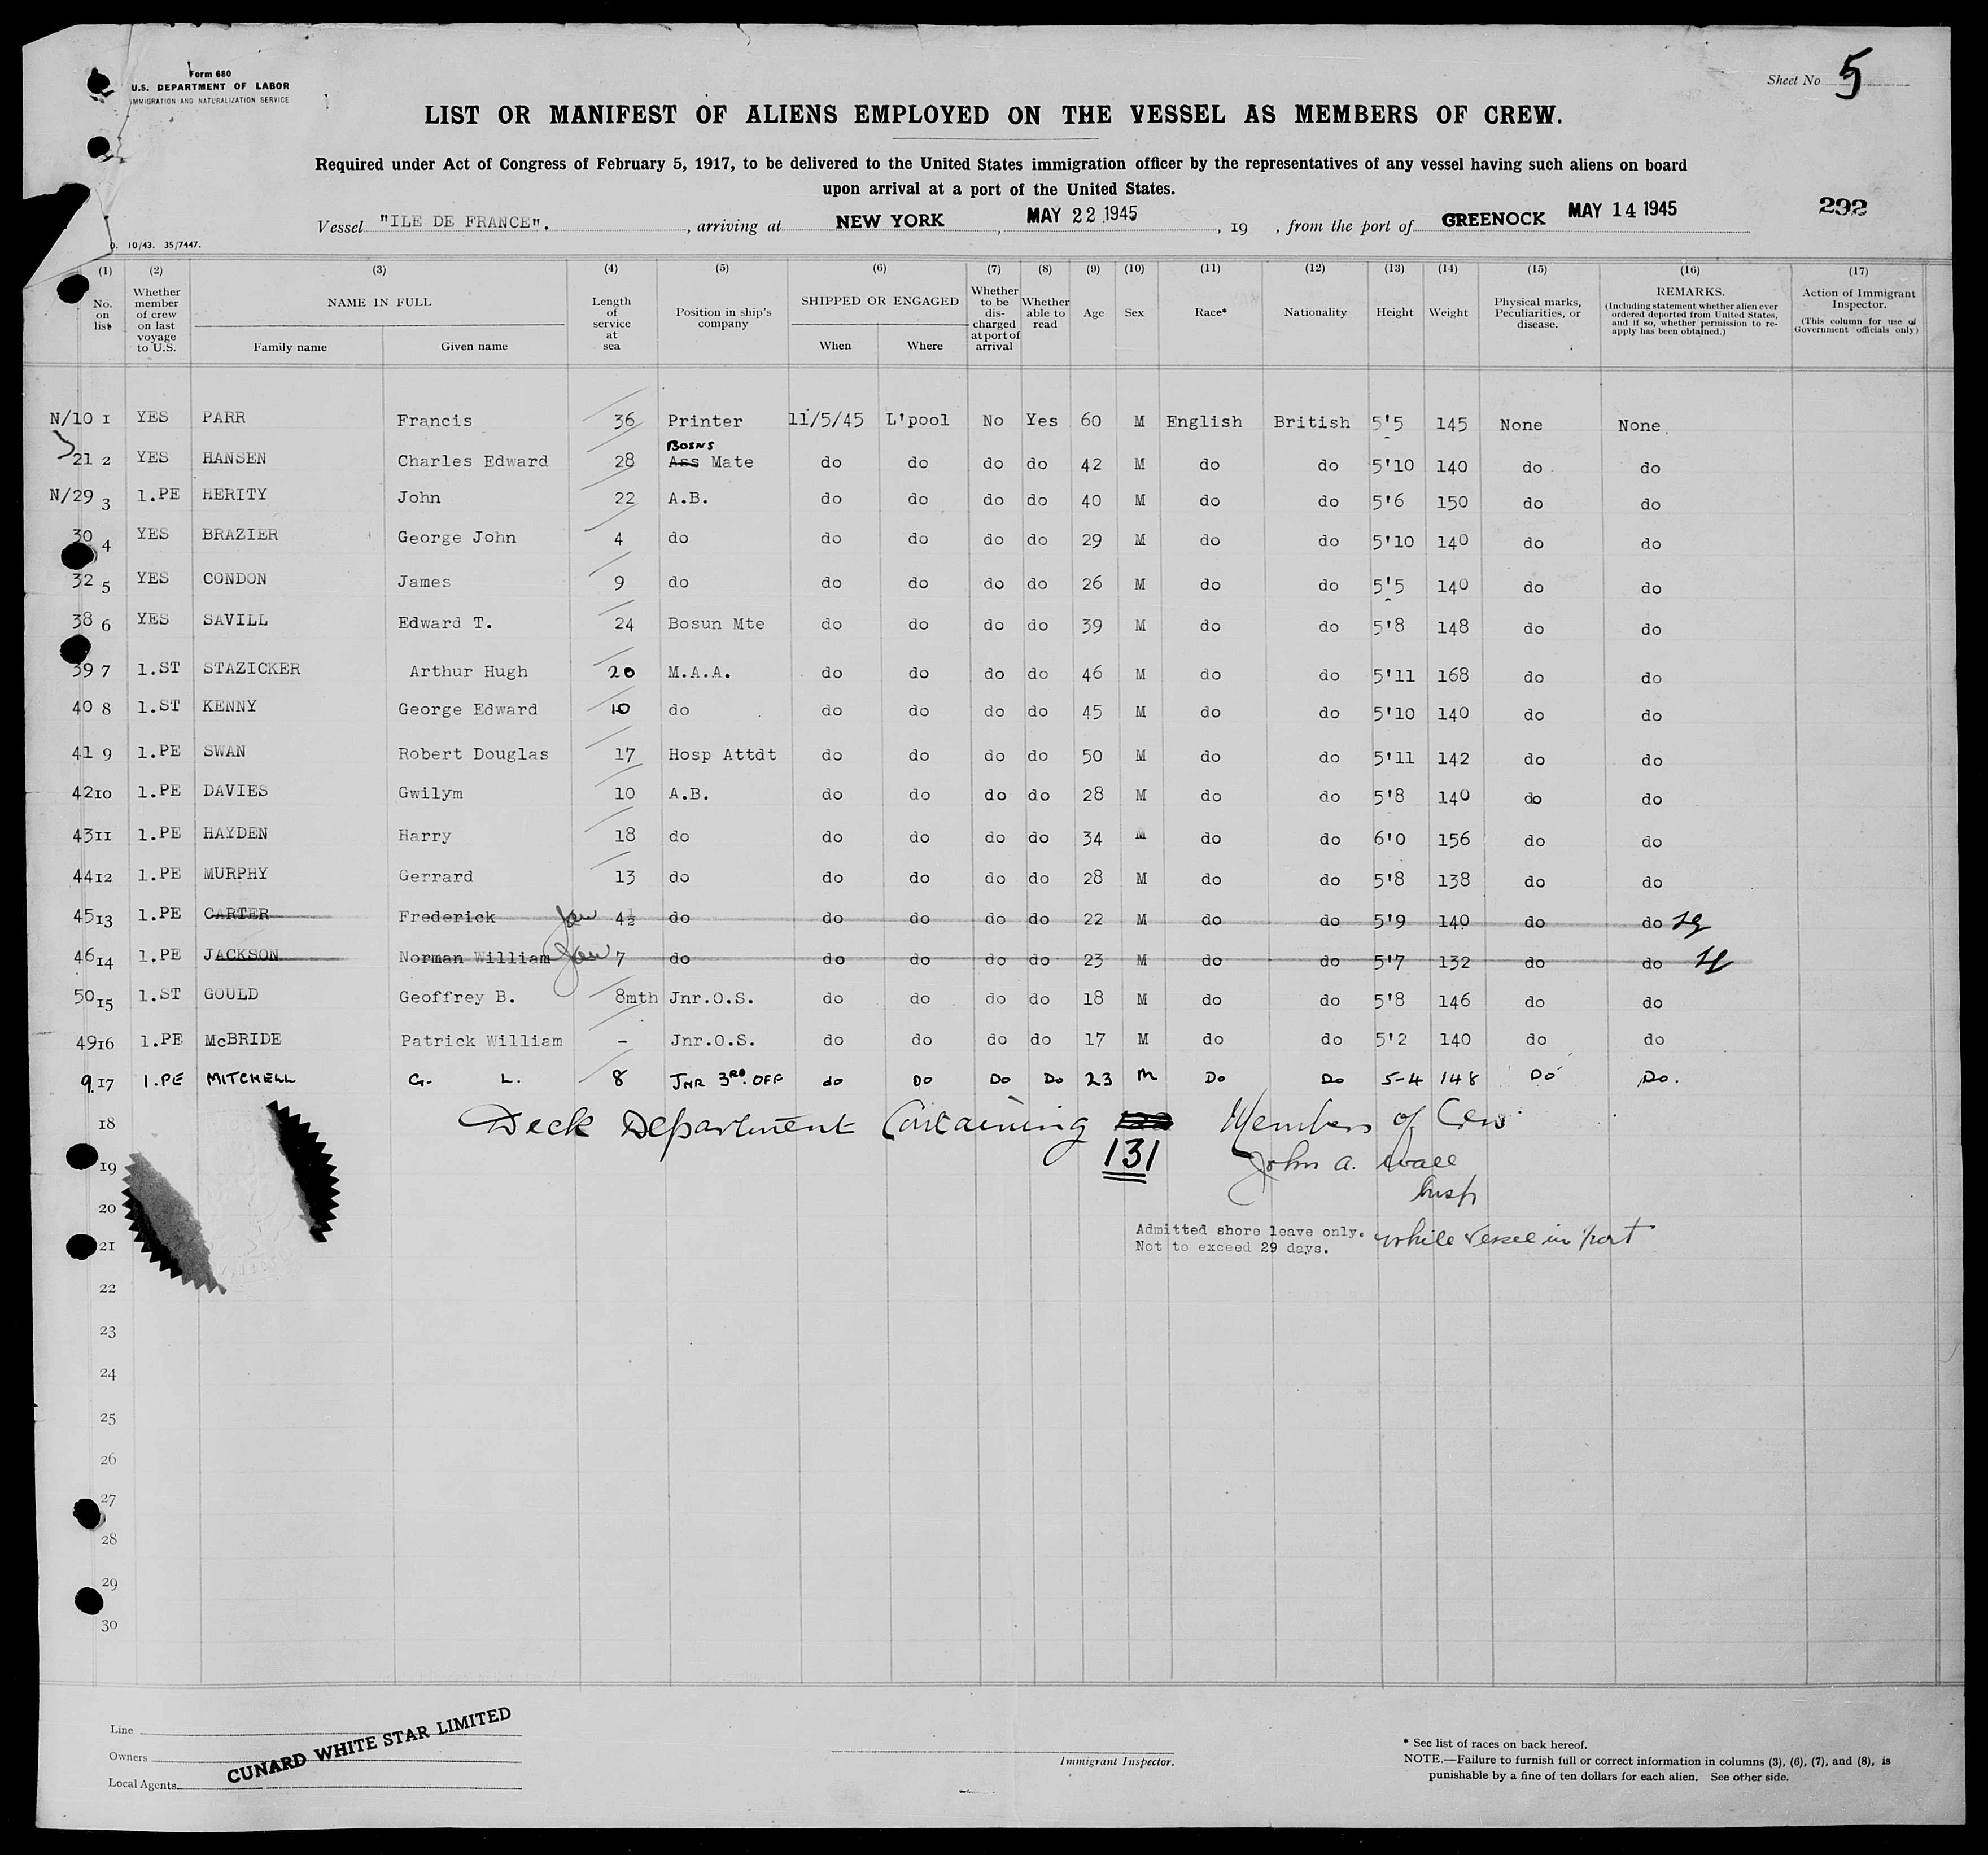 Form 680
U.S. DEPARTMENT OF LABOR
IMMIGRATION AND NATURALIZATION SERVICE
Sheet No 5
LIST OR MANIFEST OF ALIENS EMPLOYED ON THE VESSEL AS MEMBERS OF CREW.
Required under Act of Congress of February 5, 1917, to be delivered to the United States immigration officer by the representatives of any vessel having such aliens on board
upon arrival at a port of the United States.
292
Vessel "ILE DE FRANCE". , arriving at NEW YORK , MAY 22 1945 , 19 , from the port of GREENOCK MAY 14 1945
10/43. 35/7447.
(1) (2) (3) (4) (5) (6) (7) (8) (9) (10) (11) (12) (13) (14) (15) (16) (17)
No. on list
Whether member of crew on last voyage to U.S.
NAME IN FULL
Family name Given name
Length of service at sea
Position in ship's company
SHIPPED OR ENGAGED
When Where
Whether to be discharged at port of arrival
Whether able to read
Age
Sex
Race*
Nationality
Height
Weight
Physical marks, Peculiarities, or disease.
REMARKS.
(Including statement whether alien ever ordered deported from United States, and if so, whether permission to re-apply has been obtained.)
Action of Immigrant Inspector.
(This column for use of Government officials only)
N/10 1 YES PARR Francis 36 Printer 11/5/45 L'pool No Yes 60 M English British 5'5 145 None None.
21 2 YES HANSEN Charles Edward 28 Ass BOSNS Mate do do do do 42 M do do 5'10 140 do do
N/29 3 1.PE HERITY John 22 A.B. do do do do 40 M do do 5'6 150 do do
30 4 YES BRAZIER George John 4 do do do do do 29 M do do 5'10 140 do do
32 5 YES CONDON James 9 do do do do do 26 M do do 5'5 140 do do
38 6 YES SAVILL Edward T. 24 Bosun Mte do do do do 39 M do do 5'8 148 do do
39 7 1.ST STAZICKER Arthur Hugh 20 M.A.A. do do do do 46 M do do 5'11 168 do do
40 8 1.ST KENNY George Edward 10 do do do do do 45 M do do 5'10 140 do do
41 9 1.PE SWAN Robert Douglas 17 Hosp Attdt do do do do 50 M do do 5'11 142 do do
42 10 1.PE DAVIES Gwilym 10 A.B. do do do do 28 M do do 5'8 140 do do
43 11 1.PE HAYDEN Harry 18 do do do do do 34 M do do 6'0 156 do do
44 12 1.PE MURPHY Gerrard 13 do do do do do 28 M do do 5'8 138 do do
45 13 1.PE CARTER Frederick 4½ do do do do do 22 M do do 5'9 140 do do
46 14 1.PE JACKSON Norman William 7 do do do do do 23 M do do 5'7 132 do do
50 15 1.ST GOULD Geoffrey B. 8mth Jnr.O.S. do do do do 18 M do do 5'8 146 do do
49 16 1.PE McBRIDE Patrick William - Jnr.O.S. do do do do 17 M do do 5'2 140 do do
9 17 1.PE MITCHELL G. L. 8 JNR 3RD. OFF do Do Do Do 23 M Do Do 5-4 148 Do Do.
18 Deck Department Containing Members of Crew
19 131 John A. Wall
20 Insp
Admitted shore leave only. while vessel in port
21 Not to exceed 29 days.
22
23
24
25
26
27
28
29
30
Line
Owners
Local Agents
CUNARD WHITE STAR LIMITED
Immigrant Inspector.
* See list of races on back hereof.
NOTE.—Failure to furnish full or correct information in columns (3), (6), (7), and (8), is
punishable by a fine of ten dollars for each alien. See other side.